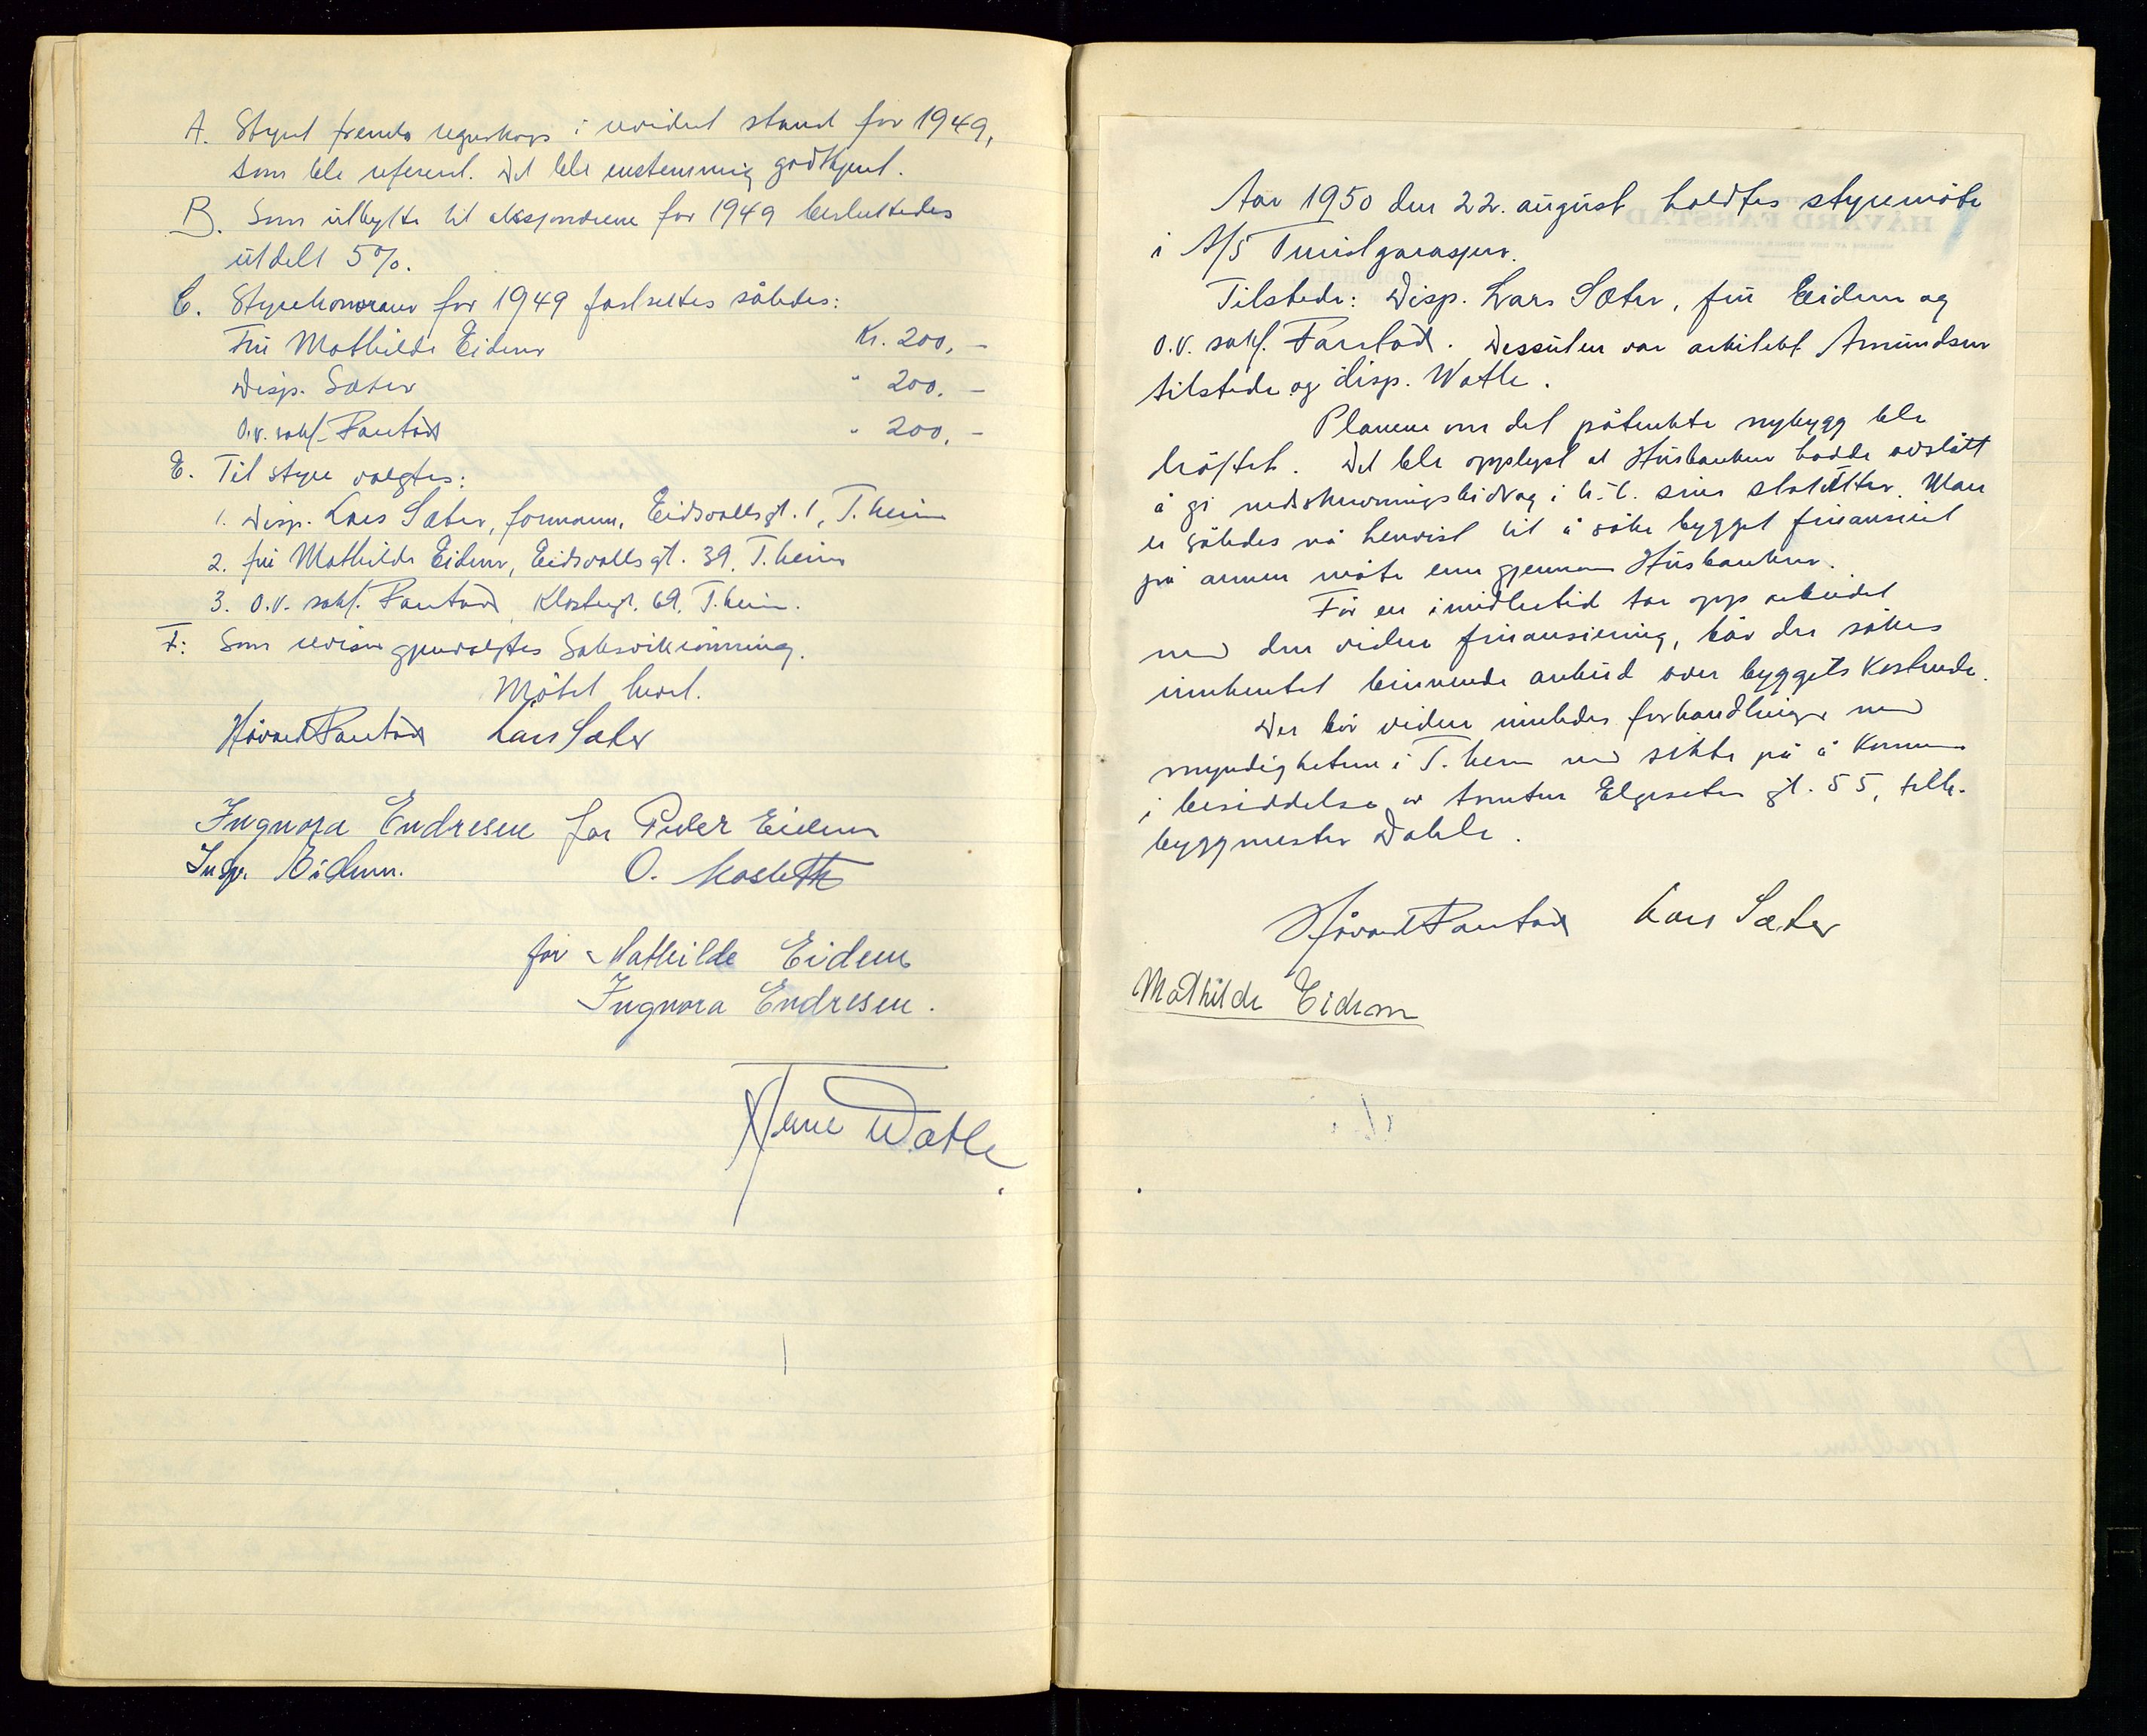 A. Styret fremla regnskaps i revidert stand for 1949,
som ble referert. Det ble enstemmig godkjent.
B. Som utbytte til aksjonærene for 1949 besluttedes
utdelt 5%.
C. Styrehonorarer for 1949 fastsettes således:
Fru Mathilde Eidem Kr. 200,-
Disp. Sæter " 200,-
O.r. sakf. Farstad " 200,-
E. Til styre valgtes:
1. Disp. Lars Sæter, formann, Eidsvollsgt. 1, T.heim
2. fru Mathilde Eidem, Eidsvollsgt. 39, T.heim
3. O.r. sakf. Farstad, Klostergt. 69, T.heim.
F: Som revisor gjenvalgtes Saksvikrønning.
Møtet hevet.
Håvard Farstad Lars Sæter
Ingnora Endresen for Peder Eidem
Eidem. O.
for Mathilde Eidem
Ingnora Endresen.
Arne Watle
HÅVARD FARSTAD
Aar 1950 den 22. august holdtes styremøte
i A/S Turistgarasjen.
Tilstede: Disp. Lars Sæter, fru Eidem og
O.r. sakf. Farstad. Dessuten var arkitekt Amundsen
tilstede og disp. Watle.
Planene om det påtenkte nybygg ble
drøftet. Det ble opplyst at Husbanken hadde avslått
å gi nedskrivningsbidrag i h.t. sine statutter. Man
er således nå henvist til å søke bygget finansiert
på annen måte enn gjennom Husbanken.
Før en imidlertid tar opp arbeidet
med den videre finansiering, bør der søkes
innhentet bindende anbud over byggets kostende.
Der bør videre innledes forhandlinger med
myndighetene i T.heim med sikte på å komme
i besiddelse av tomten Elgeseter gt. 55, tilh.
byggmester Dahle.
Håvard Farstad Lars Sæter
Mathilde Eidem